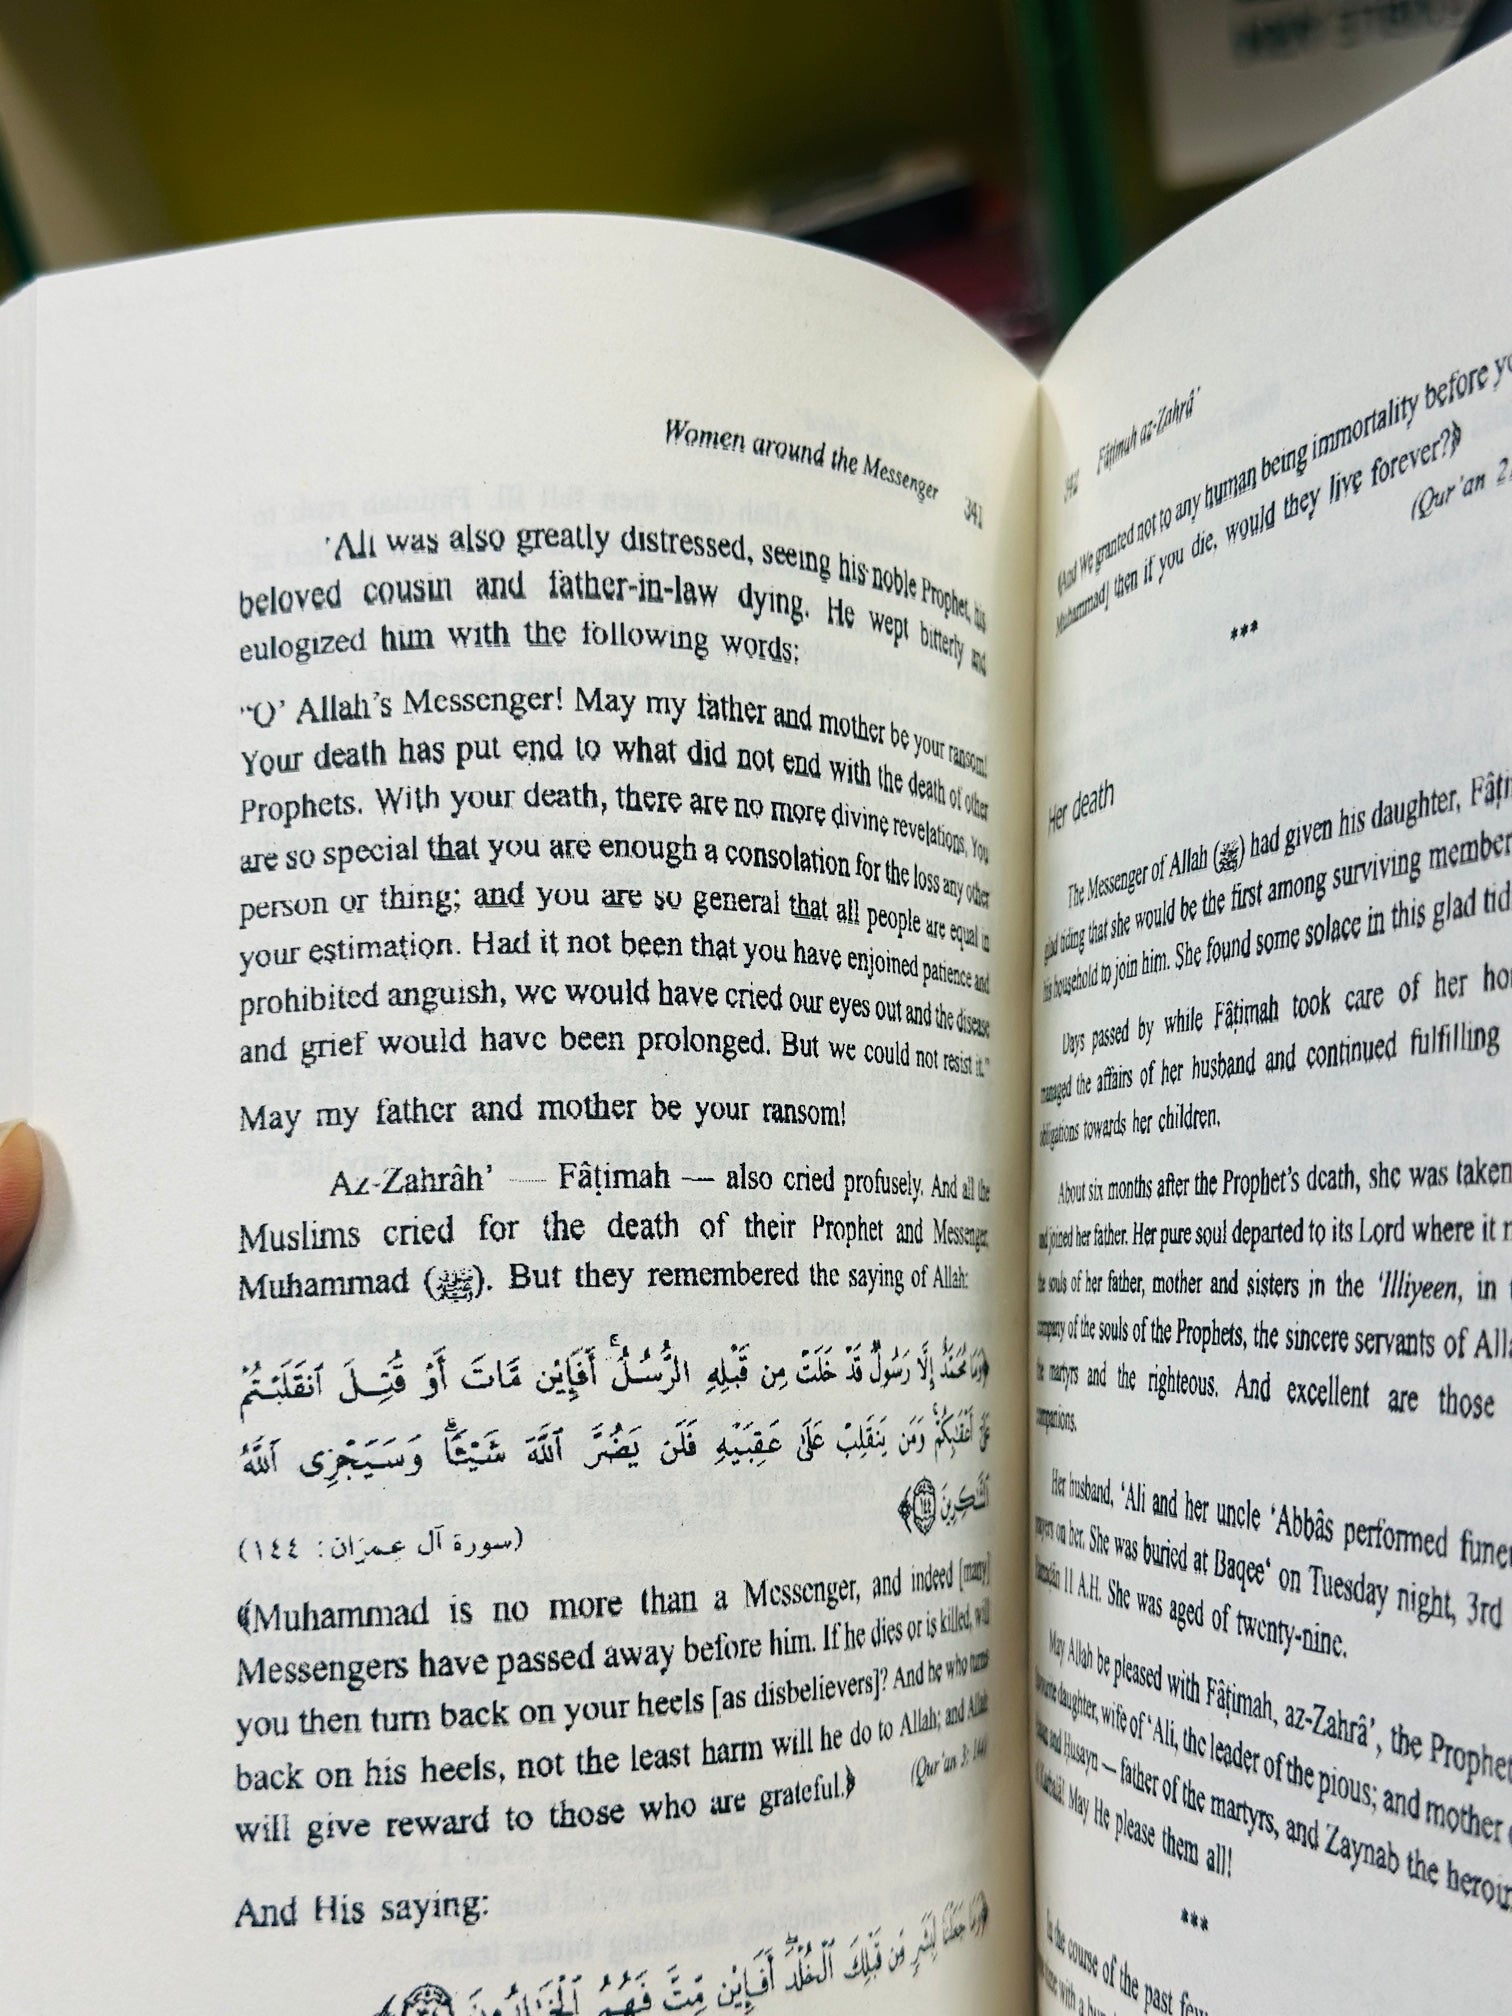 Women around the Messenger 341
'Ali was also greatly distressed, seeing his noble Prophet, his
beloved cousin and father-in-law dying. He wept bitterly and
eulogized him with the following words:
"O' Allah's Messenger! May my father and mother be your ransom!
Your death has put end to what did not end with the death of other
Prophets. With your death, there are no more divine revelations. You
are so special that you are enough a consolation for the loss any other
person or thing; and you are so general that all people are equal in
your estimation. Had it not been that you have enjoined patience and
prohibited anguish, we would have cried our eyes out and the disease
and grief would have been prolonged. But we could not resist it."
May my father and mother be your ransom!
Az-Zahrâh' — Fâṭimah — also cried profusely. And all the
Muslims cried for the death of their Prophet and Messenger,
Muhammad (ﷺ). But they remembered the saying of Allah:
﴿وَمَا مُحَمَّدٌ إِلَّا رَسُولٌ قَدْ خَلَتْ مِن قَبْلِهِ الرُّسُلُ ۚ أَفَإِيْن مَّاتَ أَوْ قُتِلَ ٱنقَلَبْتُمْ
عَلَىٰٓ أَعْقَٰبِكُمْ ۚ وَمَن يَنقَلِبْ عَلَىٰ عَقِبَيْهِ فَلَن يَضُرَّ ٱللَّهَ شَيْـًٔا ۗ وَسَيَجْزِى ٱللَّهُ
ٱلشَّٰكِرِينَ ١٤٤﴾
(سورة آل عِمرَان: ١٤٤)
﴾Muhammad is no more than a Messenger, and indeed [many]
Messengers have passed away before him. If he dies or is killed, will
you then turn back on your heels [as disbelievers]? And he who turns
back on his heels, not the least harm will he do to Allah; and Allah
will give reward to those who are grateful.﴿ (Qur'an 3: 144)
And His saying:
﴿وَمَا جَعَلْنَا لِبَشَرٍ مِّن قَبْلِكَ ٱلْخُلْدَ ۖ أَفَإِيْن مِّتَّ فَهُمُ ٱلْخَٰلِدُونَ
342 Fâṭimah az-Zahrâ'
﴾And We granted not to any human being immortality before
Muhammad] then if you die, would they live forever?﴿
(Qur'an
***
Her death
The Messenger of Allah (ﷺ) had given his daughter,
glad tiding that she would be the first among surviving
his household to join him. She found some solace in this glad
Days passed by while Fâṭimah took care of her
managed the affairs of her husband and continued fulfilling
obligations towards her children.
About six months after the Prophet's death, she was taken
and joined her father. Her pure soul departed to its Lord where it
the souls of her father, mother and sisters in the 'Illiyeen, in
company of the souls of the Prophets, the sincere servants of
the martyrs and the righteous. And excellent are those
companions.
Her husband, 'Ali and her uncle 'Abbâs performed
prayers on her. She was buried at Baqee' on Tuesday night, 3rd
Ramadân 11 A.H. She was aged of twenty-nine.
May Allah be pleased with Fâṭimah, az-Zahrâ', the
daughter, wife of 'Ali, the leader of the pious; and mother
and Husayn — father of the martyrs, and Zaynab the
May He please them all!
***
In the course of the past
with a